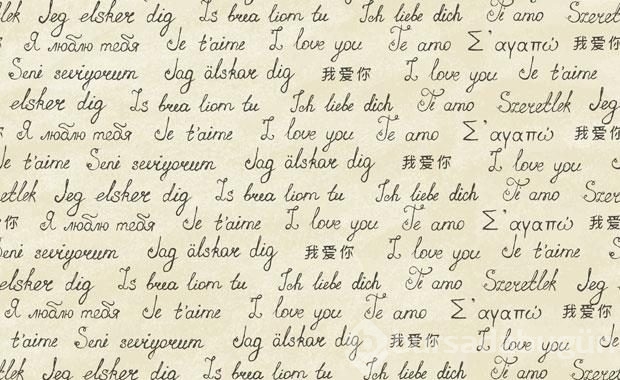 Szeretlek Jeg elsker dig Is brea liom tu Ich liebe dich Ti amo Szeretlek
Я люблю тебя Je t'aime I love you Te amo Σ'αγαπώ 我爱你
Seni seviyorum Jag älskar dig 我爱你 I love you Je t'aime
elsker dig Is brea liom tu Ich liebe dich Ti amo Szeretlek Jeg
Я люблю тебя Je t'aime I love you Te amo Σ'αγαπώ 我爱你
Je t'aime Seni seviyorum Jag älskar dig 我爱你 I love you
Szeretlek Jeg elsker dig Is brea liom tu Ich liebe dich Ti amo Szeretlek
你 Я люблю тебя Je t'aime I love you Te amo Σ'αγαπώ 我爱
Seni seviyorum Jag älskar dig 我爱你 I love you Je t'aime
elsker dig Is brea liom tu Ich liebe dich Ti amo Szeretlek Jeg
Я люблю тебя Je t'aime I love you Te amo Σ'αγαπώ 我爱你
t'aime Seni seviyorum Jag älskar dig 我爱你 I love you Je
Szeretlek Jeg elsker dig Is brea liom tu Ich liebe dich Ti amo Szeretlek